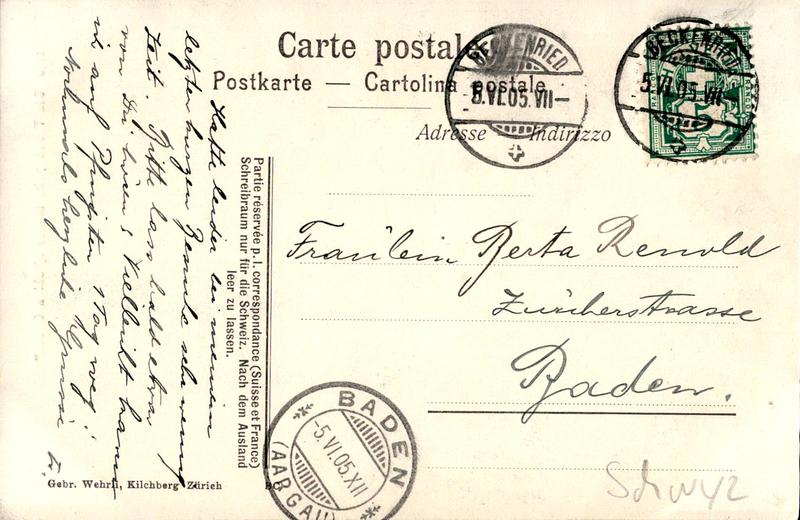 Carte postale
Postkarte — Cartolina postale
Adresse Indirizzo
BECKENRIED
5.VI.05.VII—
BECKENRIED
5.VI.05.VII—
Fräulein Berta Renold
Zürcherstrasse
Baden.
Hatte leider bei meinem
letzten kurzen Besuche sehr wenig
Zeit. Bitte lass bald etwas
von Dir hören; vielleicht kann
ich auf Pfingsten 1 Tag weg!
Nochmals herzliche Grüsse
Partie réservée p. l. correspondance (Suisse et France)
Schreibraum nur für die Schweiz. Nach dem Ausland
leer zu lassen.
BADEN
-5.VI.05.XII
(AARGAU)
Gebr. Wehrli, Kilchberg Zürich
Schwyz